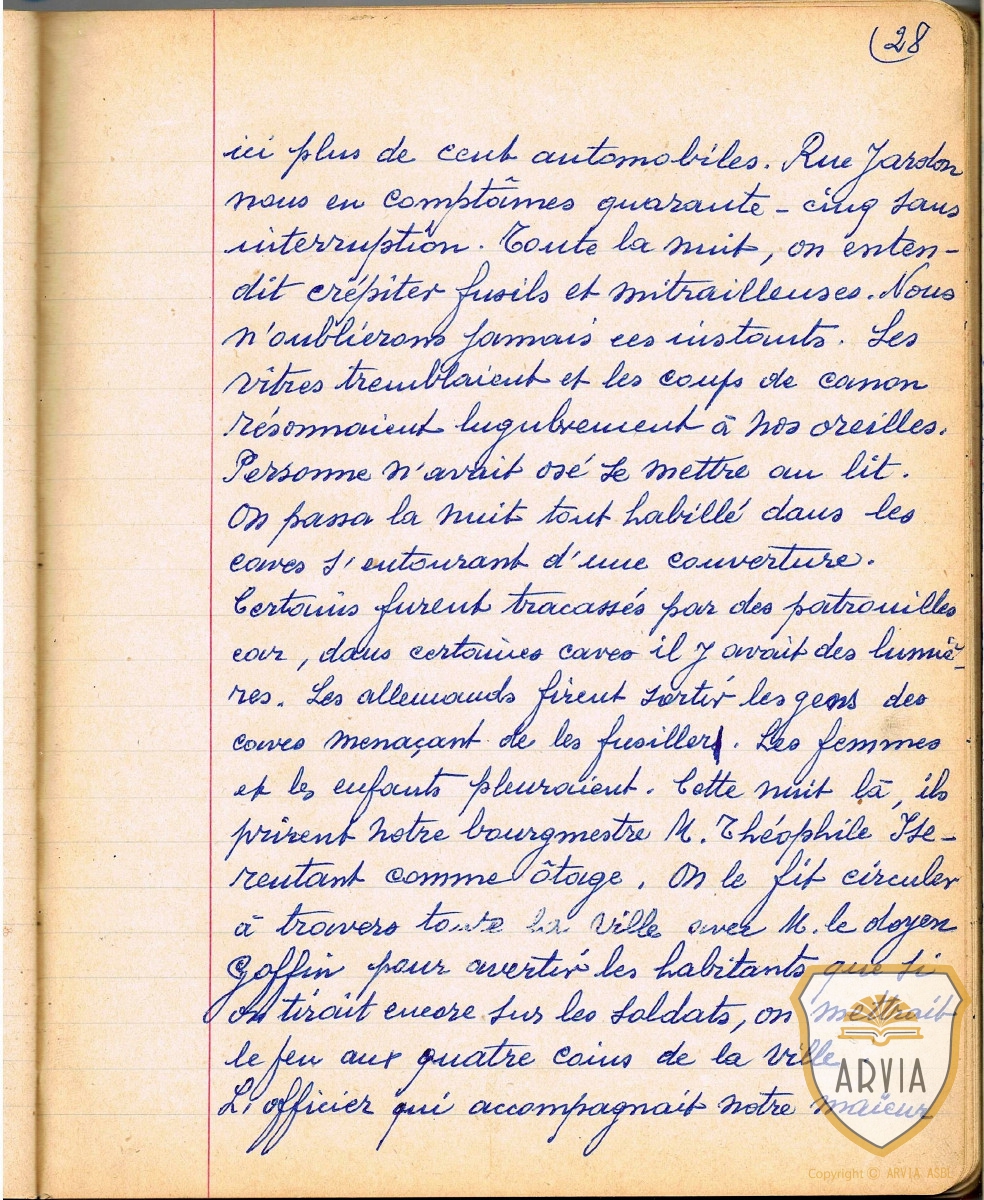 (28
ici plus de cent automobiles. Rue Jardon
nous en comptâmes quarante-cinq sans
interruption. Toute la nuit, on enten-
dit crépiter fusils et mitrailleuses. Nous
n'oublierons jamais ces instants. Les
vitres tremblaient et les coups de canon
résonnaient lugubrement à nos oreilles.
Personne n'avait osé se mettre au lit.
On passa la nuit tout habillé dans les
caves s'entourant d'une couverture.
Certains furent tracassés par des patrouilles
car, dans certaines caves il y avait des lumiè-
res. Les allemands firent sortir les gens des
caves menaçant de les fusiller. Les femmes
et les enfants pleuraient. Cette nuit là, ils
prirent notre bourgmestre M. Théophile Ise-
rentant comme ôtage. On le fit circuler
à travers toute la ville avec M. le doyen
Goffin pour avertir les habitants que si
on tirait encore sur les soldats, on mettrait
le feu aux quatre coins de la ville.
L'officier qui accompagnait notre maïeur
ARVIA
Copyright © ARVIA ASBL